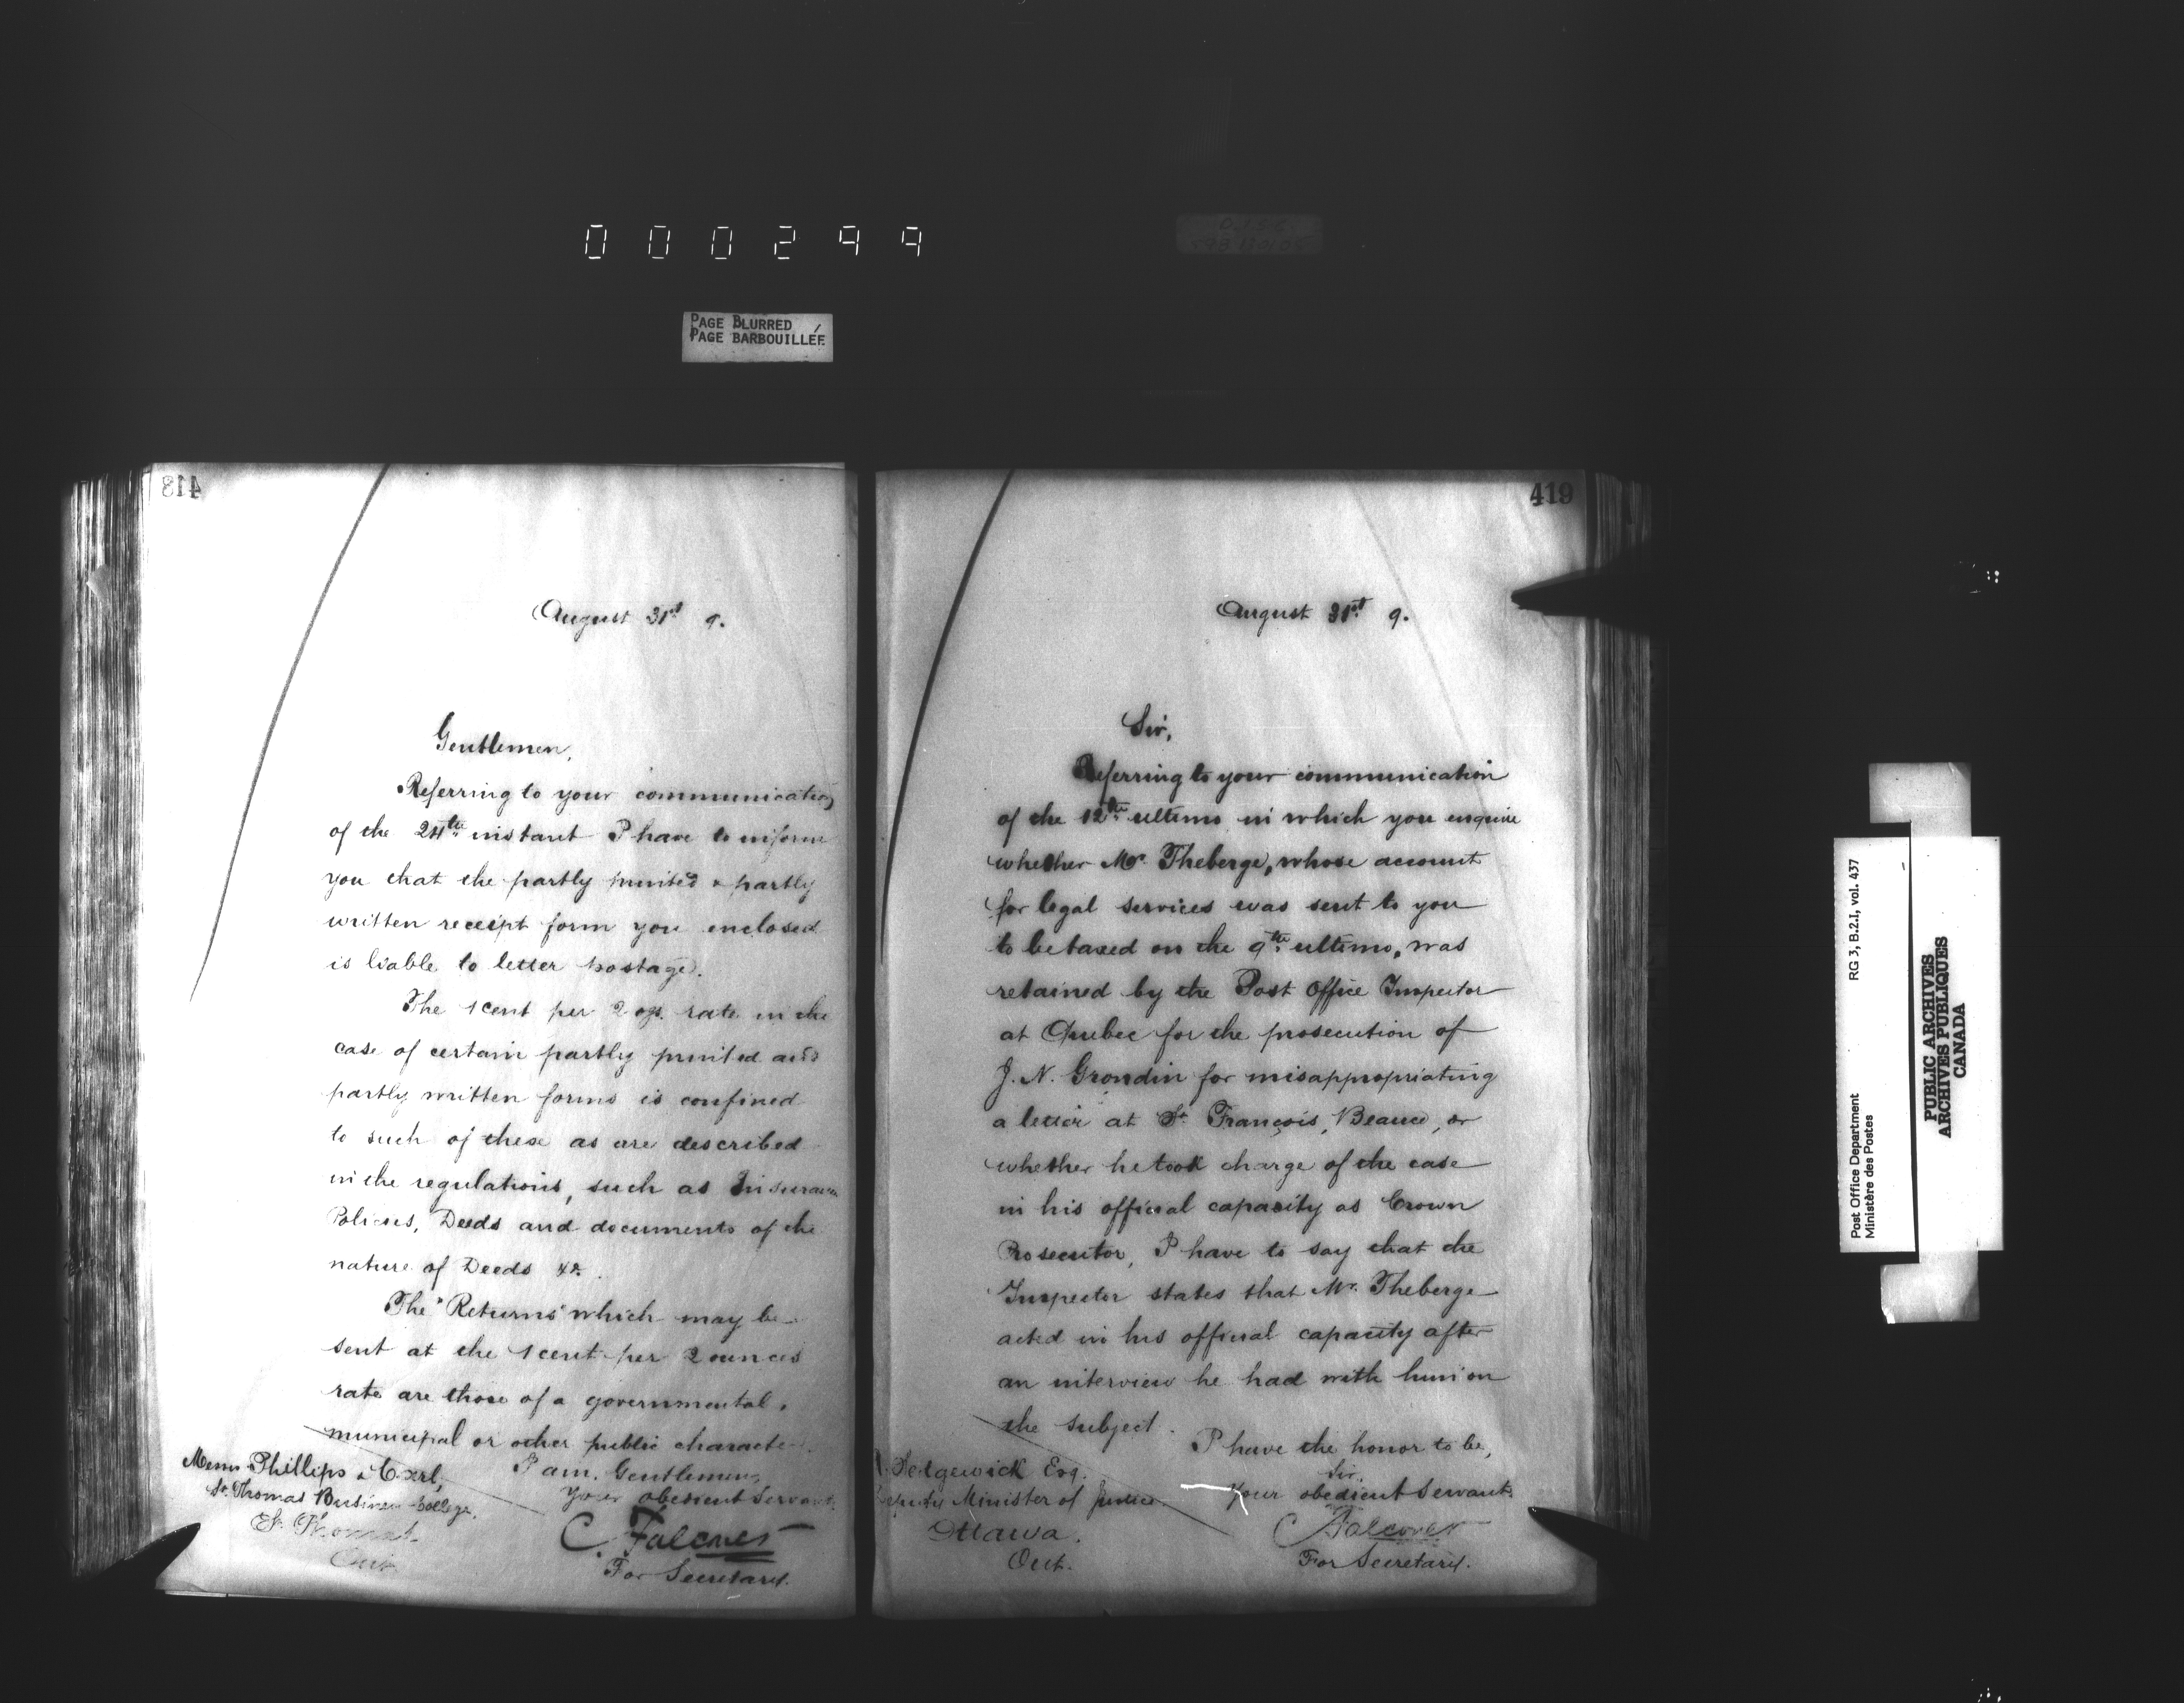 000299
PAGE BLURRED
PAGE BARBOUILLÉE
418
August 31st 9.
Gentlemen,
Referring to your communication
of the 24th instant I have to inform
you that the partly printed & partly
written receipt form you enclosed
is liable to letter postage.
The 1 cent per 2 ozs. rate in the
case of certain partly printed and
partly written forms is confined
to such of these as are described
in the regulations, such as Insurance
Policies, Deeds and documents of the
nature of Deeds &c.
The "Returns" which may be
sent at the 1 cent per 2 ounces
rate are those of a governmental,
municipal or other public character.
I am, Gentlemen,
Your obedient servant,
C. Falconer
For Secretary.
Messrs Phillips &
St. Thomas Business College,
St. Thomas
Ont.
419
August 31st 9.
Sir,
Referring to your communication
of the 12th ultimo in which you enquire
whether Mr. Theberge, whose account
for legal services was sent to you
to be taxed on the 9th ultimo, was
retained by the Post Office Inspector
at Quebec for the prosecution of
J. N. Grondin for misappropriating
a letter at St. François, Beauce, or
whether he took charge of the case
in his official capacity as Crown
Prosecutor, I have to say that the
Inspector states that Mr. Theberge
acted in his official capacity after
an interview he had with him on
the subject.
I have the honor to be,
Sir,
Your obedient servant
C Falconer
For Secretary.
Sedgewick Esq.
Deputy Minister of Justice
Ottawa.
Ont.
Post Office Department
Ministère des Postes
RG 3, B.2.1, vol. 437
PUBLIC ARCHIVES
ARCHIVES PUBLIQUES
CANADA